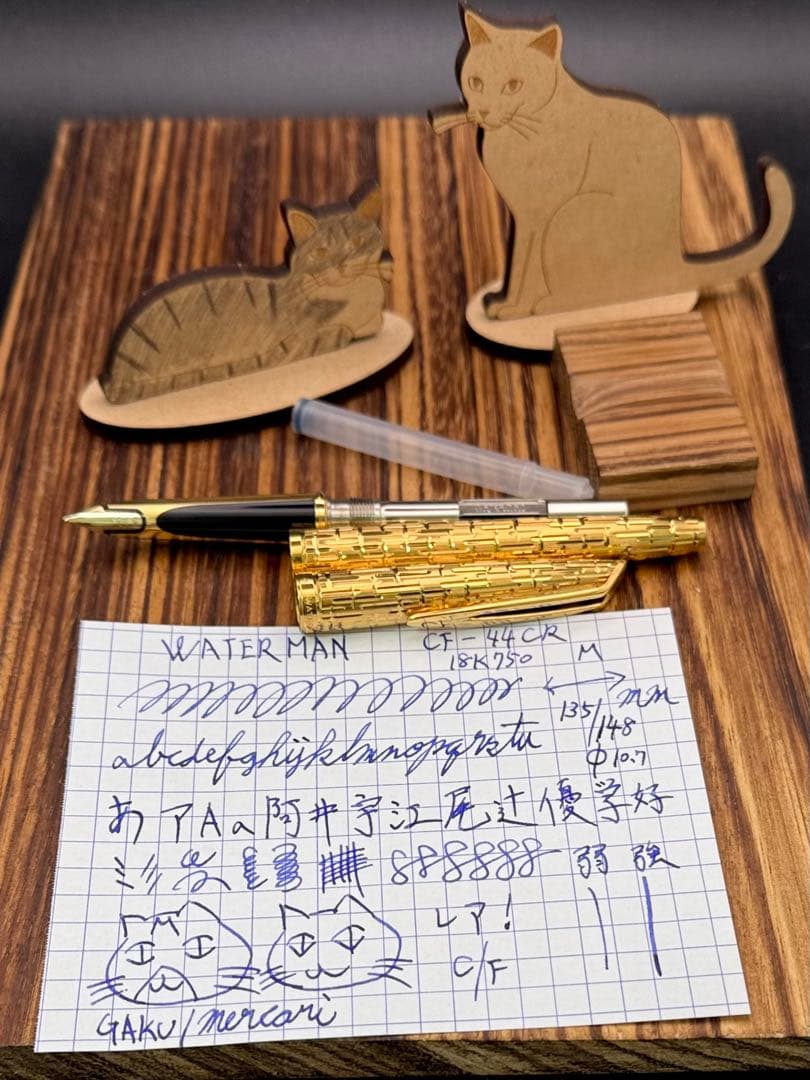 WATERMAN
CF-44CR
18K750
M
135/148 mm
φ10.7
abcdefghijklmnopqrstu
あアAa阿井宇江尾辻優学好
弱 強
レア!
C/F
GAKU/mercari